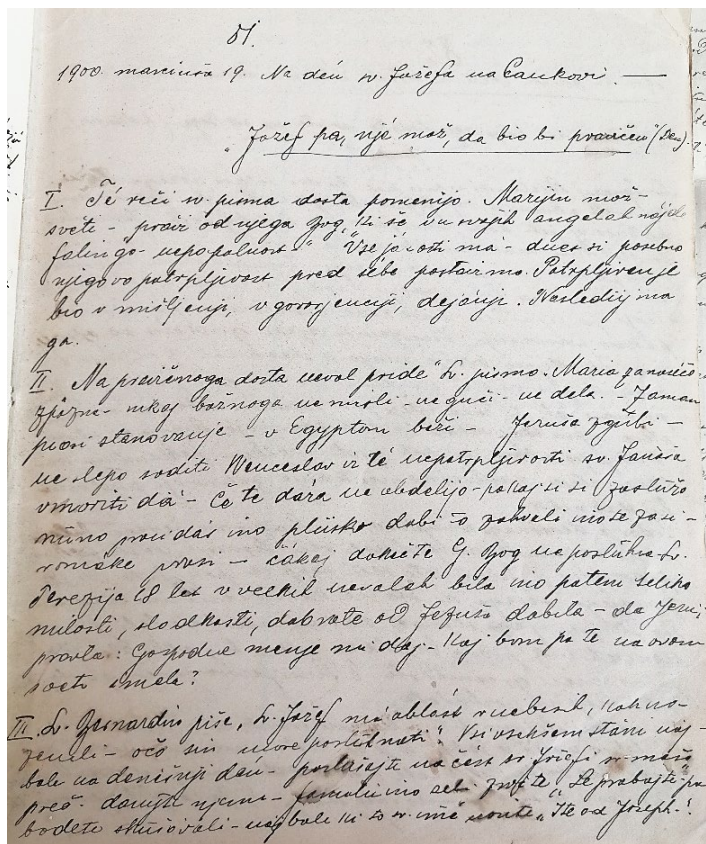 51.
1900. marciuša 19. Na dén sv. Jožefa na Cankovi. —
„Jožef pa, njé mož, da bio bi pravičen"
I. Té reči sv. pisma dosta pomenijo. Marijin mož-
sveti - pravi od njega Bog, ki še vu svojih angelah nájde
falingo - nepopolnost". Vse jákosti má - dnes si posebno
njegovo potrpljivost pred sébe postavimo. Potrpljiven je
bio v mišljenji, v govorjenji, dejánji. Nasledüjmo
ga.
II. Na pravičnoga dosta nevol pride" Sv. pismo. Maria
nikaj božnoga ne misli - ne guči - ne dela. - Zaman
prosi stanovanje - v Egyptom beži - Jezuša zgübi -
ne slepo soditi Wenceslav iz té nepotrpljivosti sv. Januša
vmoriti dá - Če te dára ne obdelijo - pokaj si si zaslüžo
pride ino plüsko dobi
prosi - čakaj dokeč te G. Bog ne poslühne. Sv.
Terezija 18 let v velkih nevolah bila ino potem teliko
milosti, slodkosti, dobrote od Jezuša dobila - da je
pravla: Gospodne menje mi daj - Kaj bom pa te na ovom
sveti imela?
III. Sv. Bernardin piše, Sv. Jožef má oblást v nebesih, kak na
zemli - oča sin more poslühnoti". Vu vsakšem stáni naj-
bole na denešnji dén - poslüšajte na čést sv. Jožefi sv. mešo
familio ino sebi zročte „Le probajte pa
bodete sküšávali - najbole ki to sv. imé nosite „Ite ad Joseph."